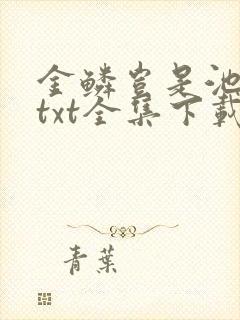 金鳞岂是池
txt全集下载
青葉